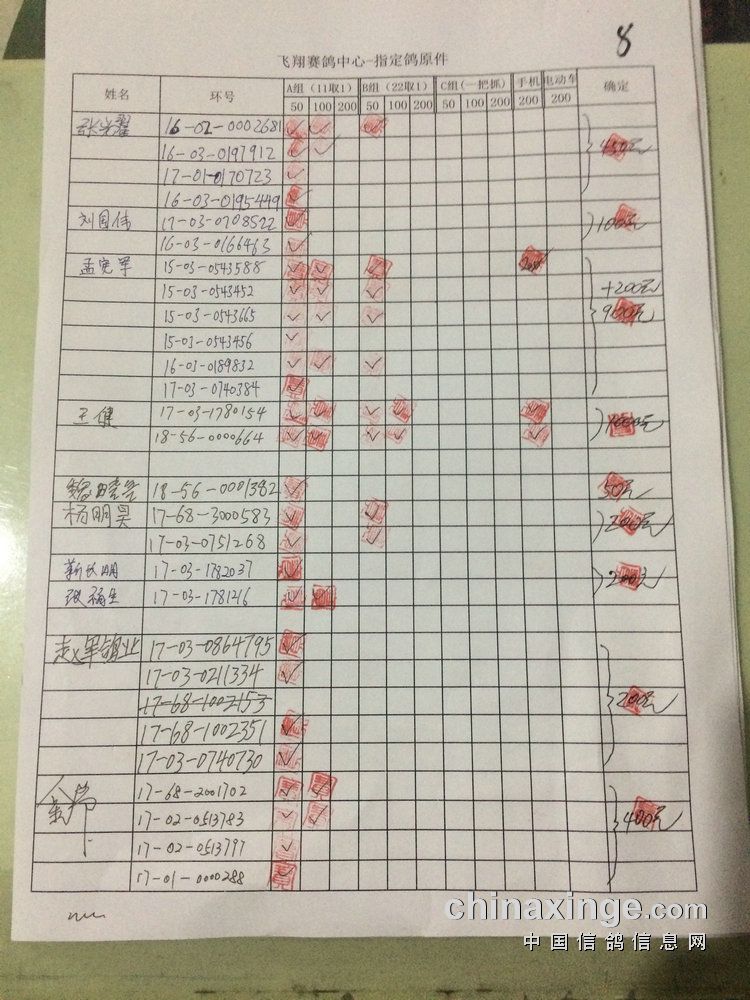 8
飞翔赛鸽中心-指定鸽原件
姓名 环号 A组（11取1） B组（22取1） C组（一把抓） 手机 电动车 确定
50 100 200 50 100 200 50 100 200 200 200
张光耀 16-02-0002681 ✓ ✓ ✓
16-03-0197912 ✓ ✓ 450元
17-01-0170723 ✓
16-03-0195449 ✓
刘国伟 17-03-0708522 ✓ 100元
16-03-0166463 ✓
孟宪军 15-03-0543588 ✓ ✓ ✓ 200
15-03-0543452 ✓ ✓ ✓ +200元
15-03-0543665 ✓ ✓ ✓ 900元
15-03-0543456 ✓
16-03-0189832 ✓ ✓ ✓
17-03-0740384 ✓
王健 17-03-1780154 ✓ ✓ ✓ ✓ ✓ 1000元
18-56-0000664 ✓ ✓ ✓ ✓ ✓
18-56-0001382 ✓ 50元
杨明昊 17-68-3000583 ✓ ✓ 200元
17-03-0751268 ✓ ✓
靳长明 17-03-1782037 ✓ 200元
张福生 17-03-1781216 ✓ ✓
赵军铜业 17-03-0864795 ✓
17-03-0211334 ✓
17-68-1002153 200元
17-68-1002351 ✓
17-03-0740730 ✓
17-68-2001702 ✓ ✓
17-02-0513783 ✓ ✓ 400元
17-02-0513797 ✓
17-01-0000288 ✓
chinaxinge.com
中国信鸽信息网